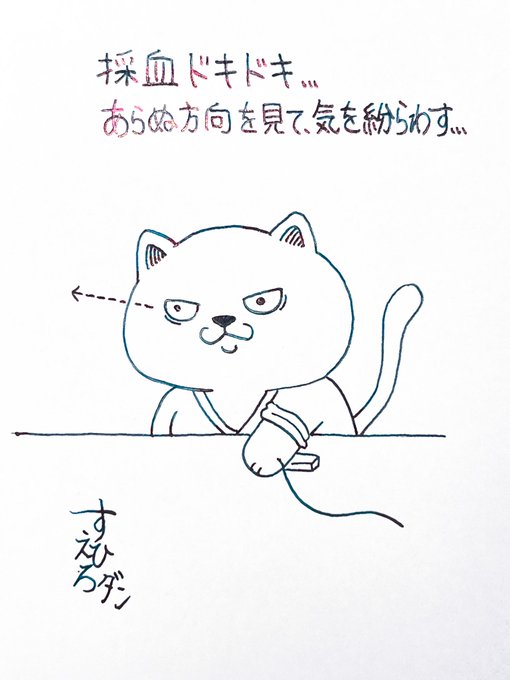 採血ドキドキ...
あらぬ方向を見て、気を紛らわす...
すえひろダン